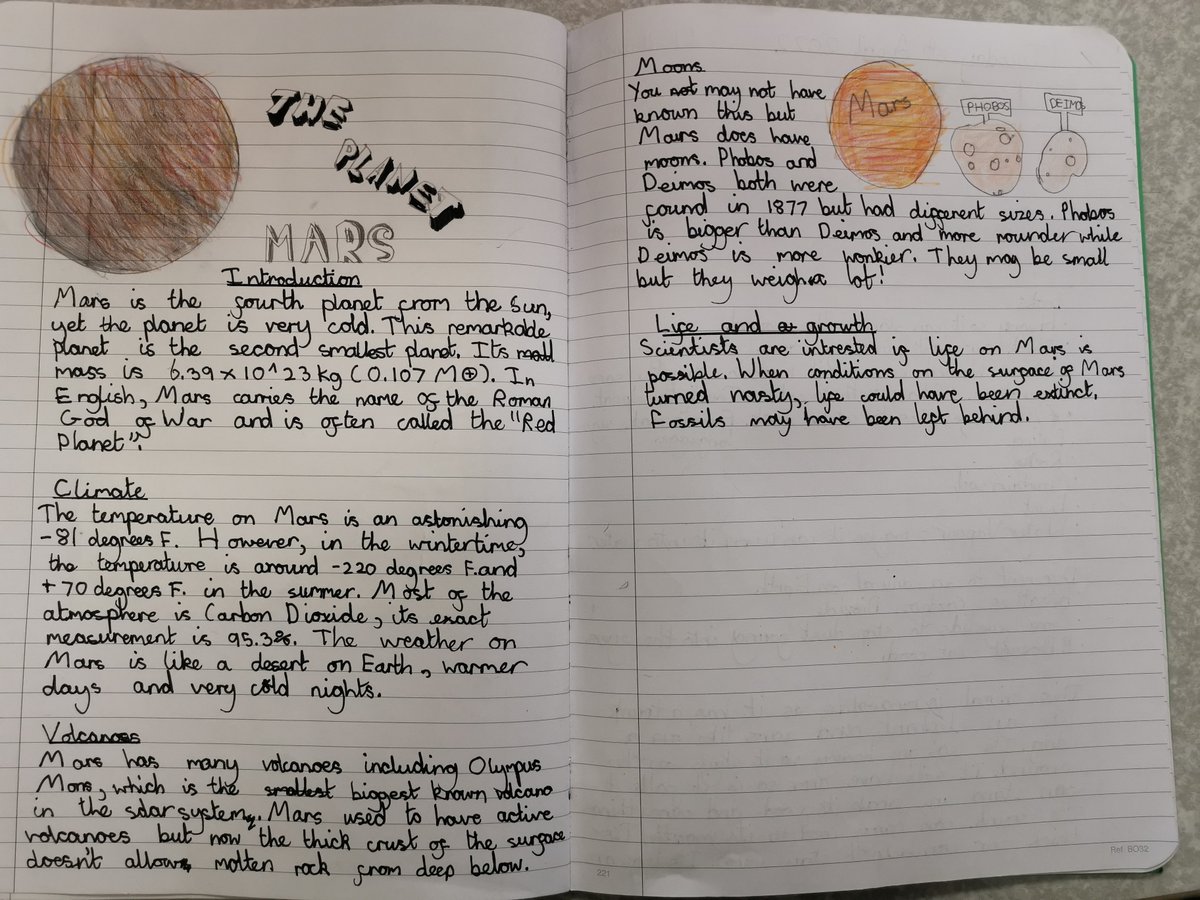 THE
PLANET
MARS
Introduction
Mars is the fourth planet from the Sun,
yet the planet is very cold. This remarkable
planet is the second smallest planet. Its
mass is 6.39 x 10^23 kg (0.107 M⊕). In
English, Mars carries the name of the Roman
God of War and is often called the "Red
Planet".
Climate
The temperature on Mars is an astonishing
-81 degrees F. However, in the wintertime,
the temperature is around -220 degrees F. and
+70 degrees F. in the summer. Most of the
atmosphere is Carbon Dioxide, its exact
measurement is 95.3%. The weather on
Mars is like a desert on Earth, warmer
days and very cold nights.
Volcanoes
Mars has many volcanoes including Olympus
Mons, which is the smallest biggest known volcano
in the solar system. Mars used to have active
volcanoes but now the thick crust of the surface
doesn't allow molten rock from deep below.
221
Moons
You not may not have
known this but
Mars does have
moons. Phobos and
Deimos both were
found in 1877 but had different sizes. Phobos
is bigger than Deimos and more rounder while
Deimos is more wonkier. They may be small
but they weigh a lot!
Mars
PHOBOS
DEIMOS
Life and growth
Scientists are intrested if life on Mars is
possible. When conditions on the surface of Mars
turned nasty, life could have been extinct.
Fossils may have been left behind.
Ref. BO32